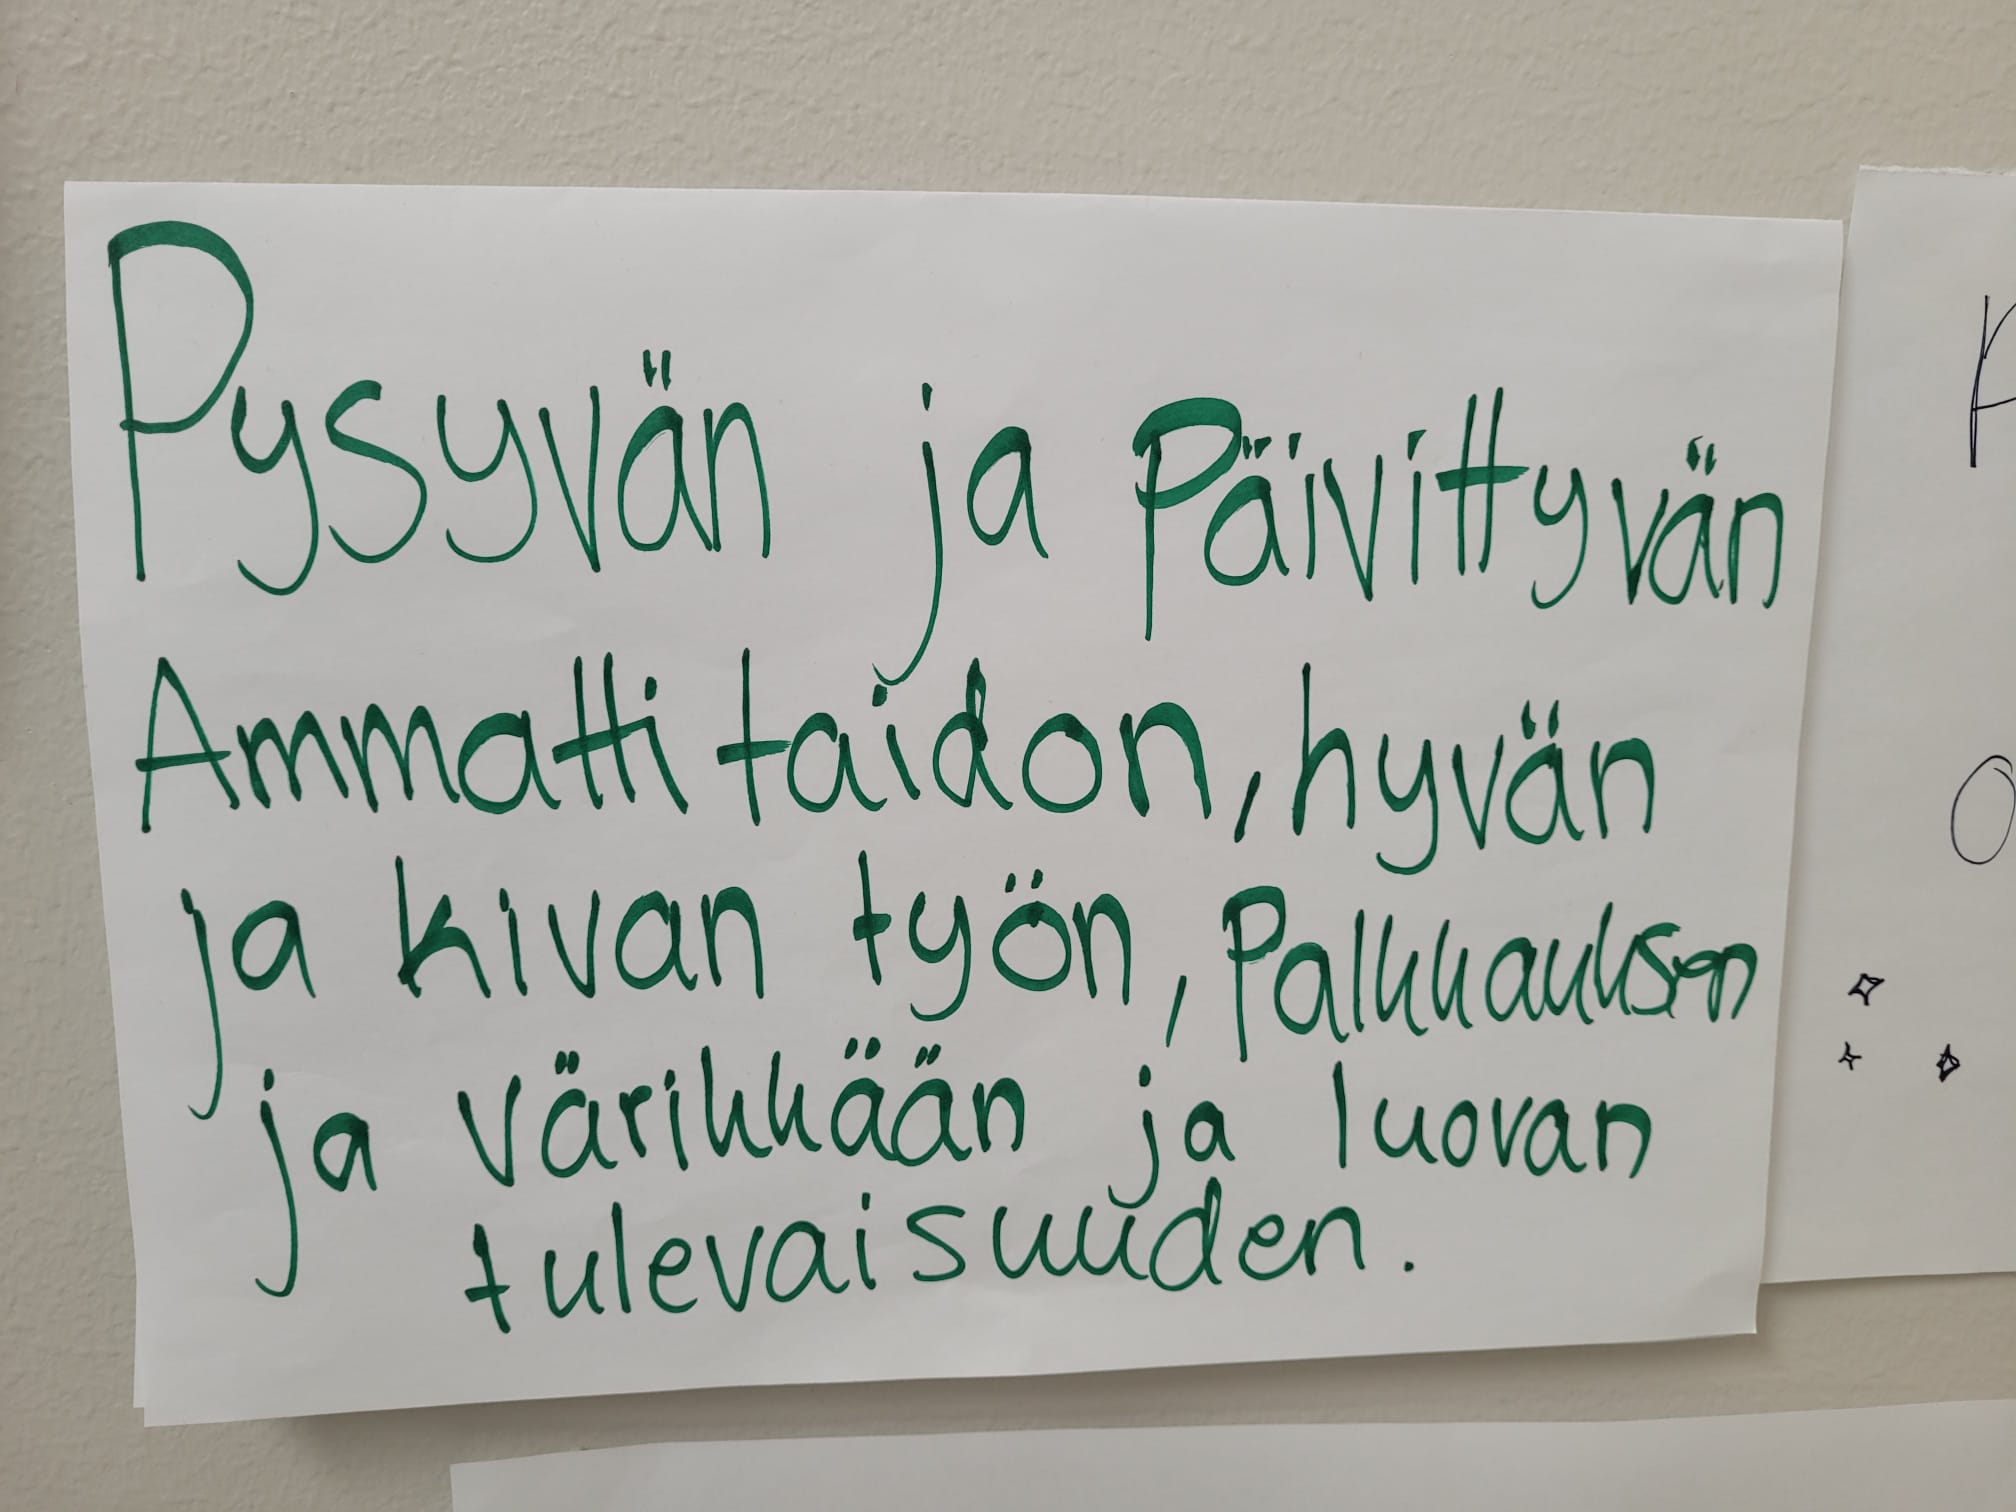 Pysyvän ja Päivittyvän
Ammatti taidon, hyvän
ja kivan työn, Palkkauksen
ja värikkään ja luovan
tulevaisuuden.